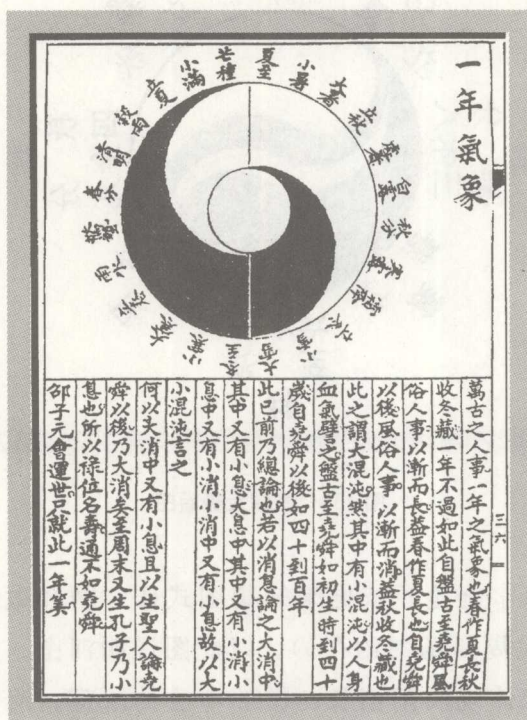 一年氣象
夏至
小暑
大暑
立秋
處暑
白露
秋分
寒露
霜降
立冬
小雪
大雪
冬至
小寒
大寒
立春
雨水
驚蟄
春分
清明
穀雨
立夏
小滿
芒種
三六
萬古之人事一年之氣象也春作夏長秋
收冬藏一年不過如此自盤古至堯舜風
俗人事以漸而長蓋春作夏長也自堯舜
以後風俗人事以漸而消蓋秋收冬藏也
此之謂大混沌然其中有小混沌以人身
血氣譬之盤古至堯舜如初生時到四十
歲自堯舜以後如四十到百年
此已前乃總論也若以消息論之大消中
其中又有小息大息中其中又有小消小
息中又有小消小消中又有小息故以大
小混沌言之
何以大消中又有小息且以生聖人論堯
舜以後乃大消矣至周末又生孔子乃小
息也所以祿位名壽通不如堯舜
邵子元會運世只就此一年筭